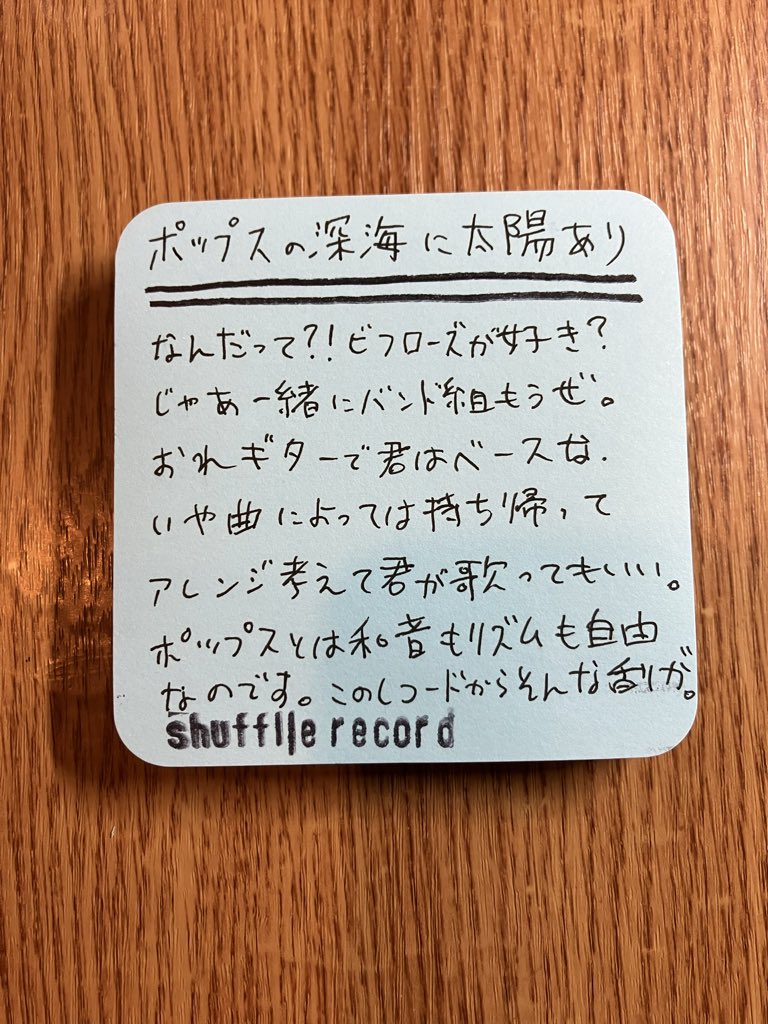 ポップスの深海に太陽あり
なんだって?!ビフローズが好き?
じゃあ一緒にバンド組もうぜ。
おれギターで君はベースな.
いや曲によっては持ち帰って
アレンジ考えて君が歌ってもいい。
ポップスとは和音もリズムも自由
なのです。このレコードからそんな香りが。
shuffle record